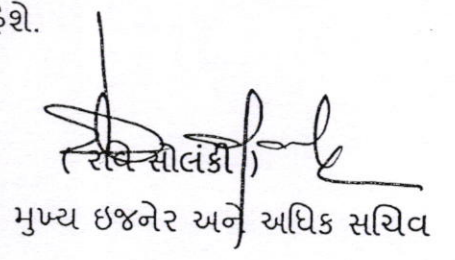 હશે.
( રવિ સોલંકી )
મુખ્ય ઇજનેર અને અધિક સચિવ